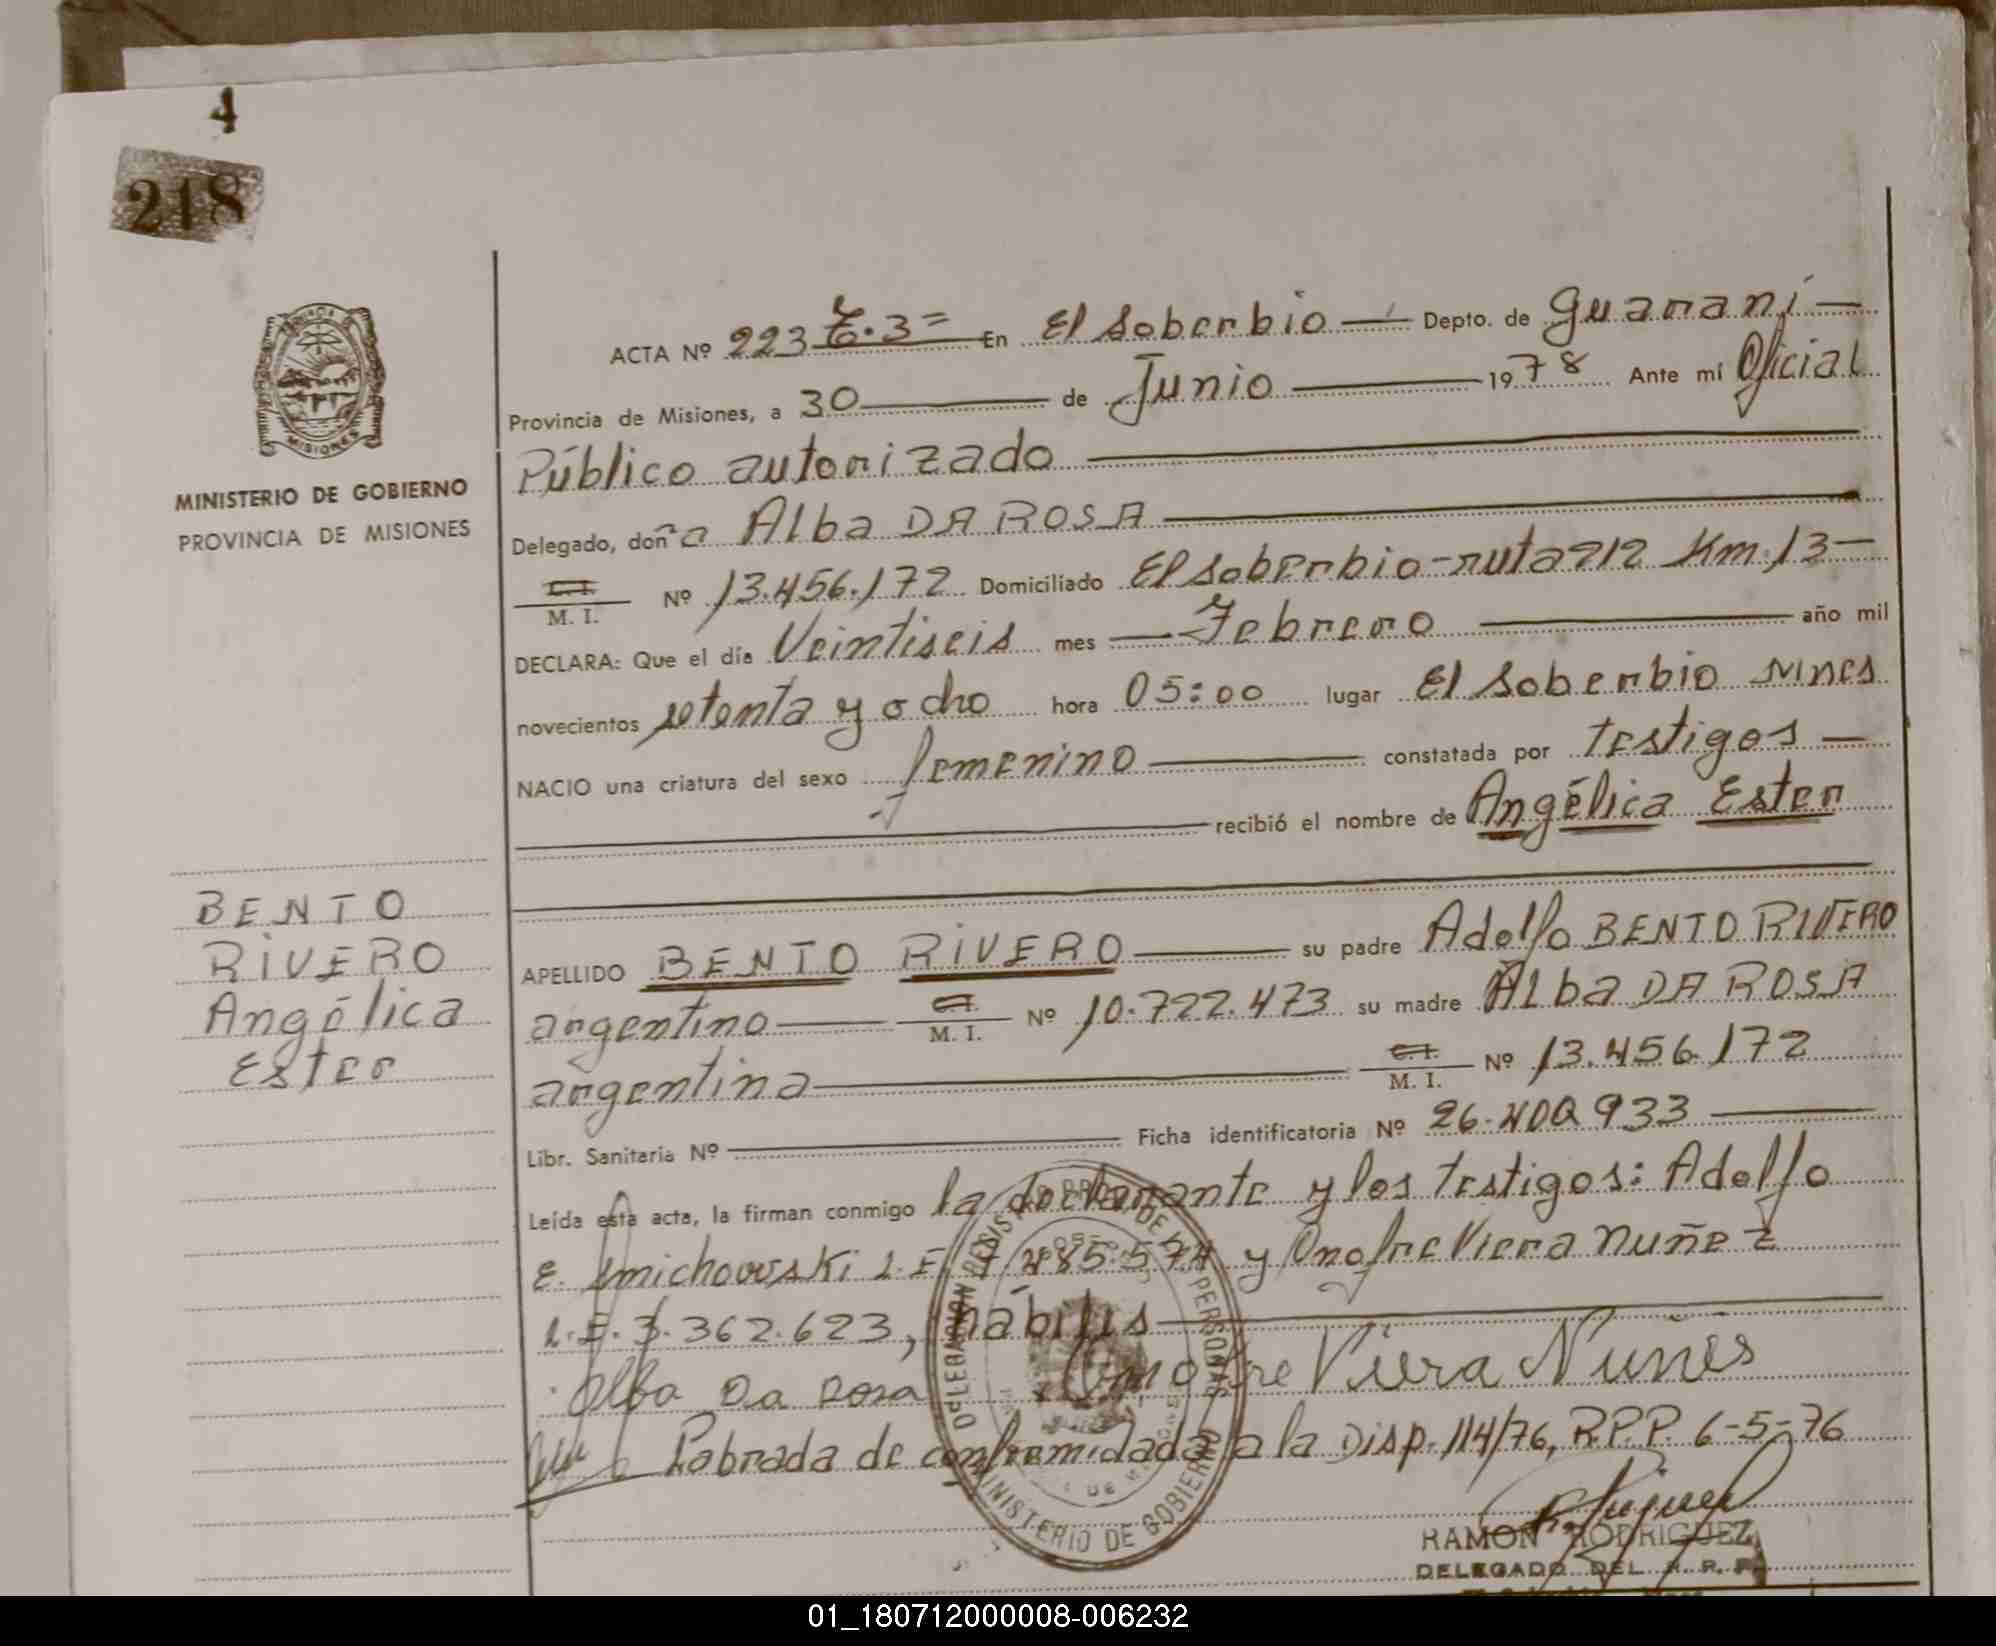 4
218
MISIONES
MINISTERIO DE GOBIERNO
PROVINCIA DE MISIONES
ACTA Nº 223 T.3= En El Soberbio Depto. de Guarani
Provincia de Misiones, a 30 de Junio 1978 Ante mí Oficial
Público autorizado
Delegado, doña Alba DA ROSA
C.I. / M. I. Nº 13.456.172 Domiciliado El Soberbio-ruta 212 Km.13-
DECLARA: Que el día Veintiseis mes Febrero año mil
novecientos setenta y ocho hora 05:00 lugar El Soberbio Mnes
NACIO una criatura del sexo femenino constatada por testigos
recibió el nombre de Angélica Ester
BENTO
RIVERO
Angélica
Ester
APELLIDO BENTO RIVERO su padre Adolfo BENTO RIVERO
argentino C.I. / M. I. Nº 10.722.473 su madre Alba DA ROSA
argentina C.I. / M. I. Nº 13.456.172
Libr. Sanitaria Nº Ficha identificatoria Nº 26.400933
Leída esta acta, la firman conmigo la declarante y los testigos: Adolfo
E. Smichowski L.E. 7.485.574 y Onofre Viera Nuñez
L.E. 3.362.623, hábiles
Alba Da Rosa Onofre Viera Nunes
Labrada de conformidad a la Disp. 114/76, R.P.P. 6-5-76
MINISTERIO DE GOBIERNO
RAMON RODRIGUEZ
DELEGADO DEL R. R. P.
01_180712000008-006232